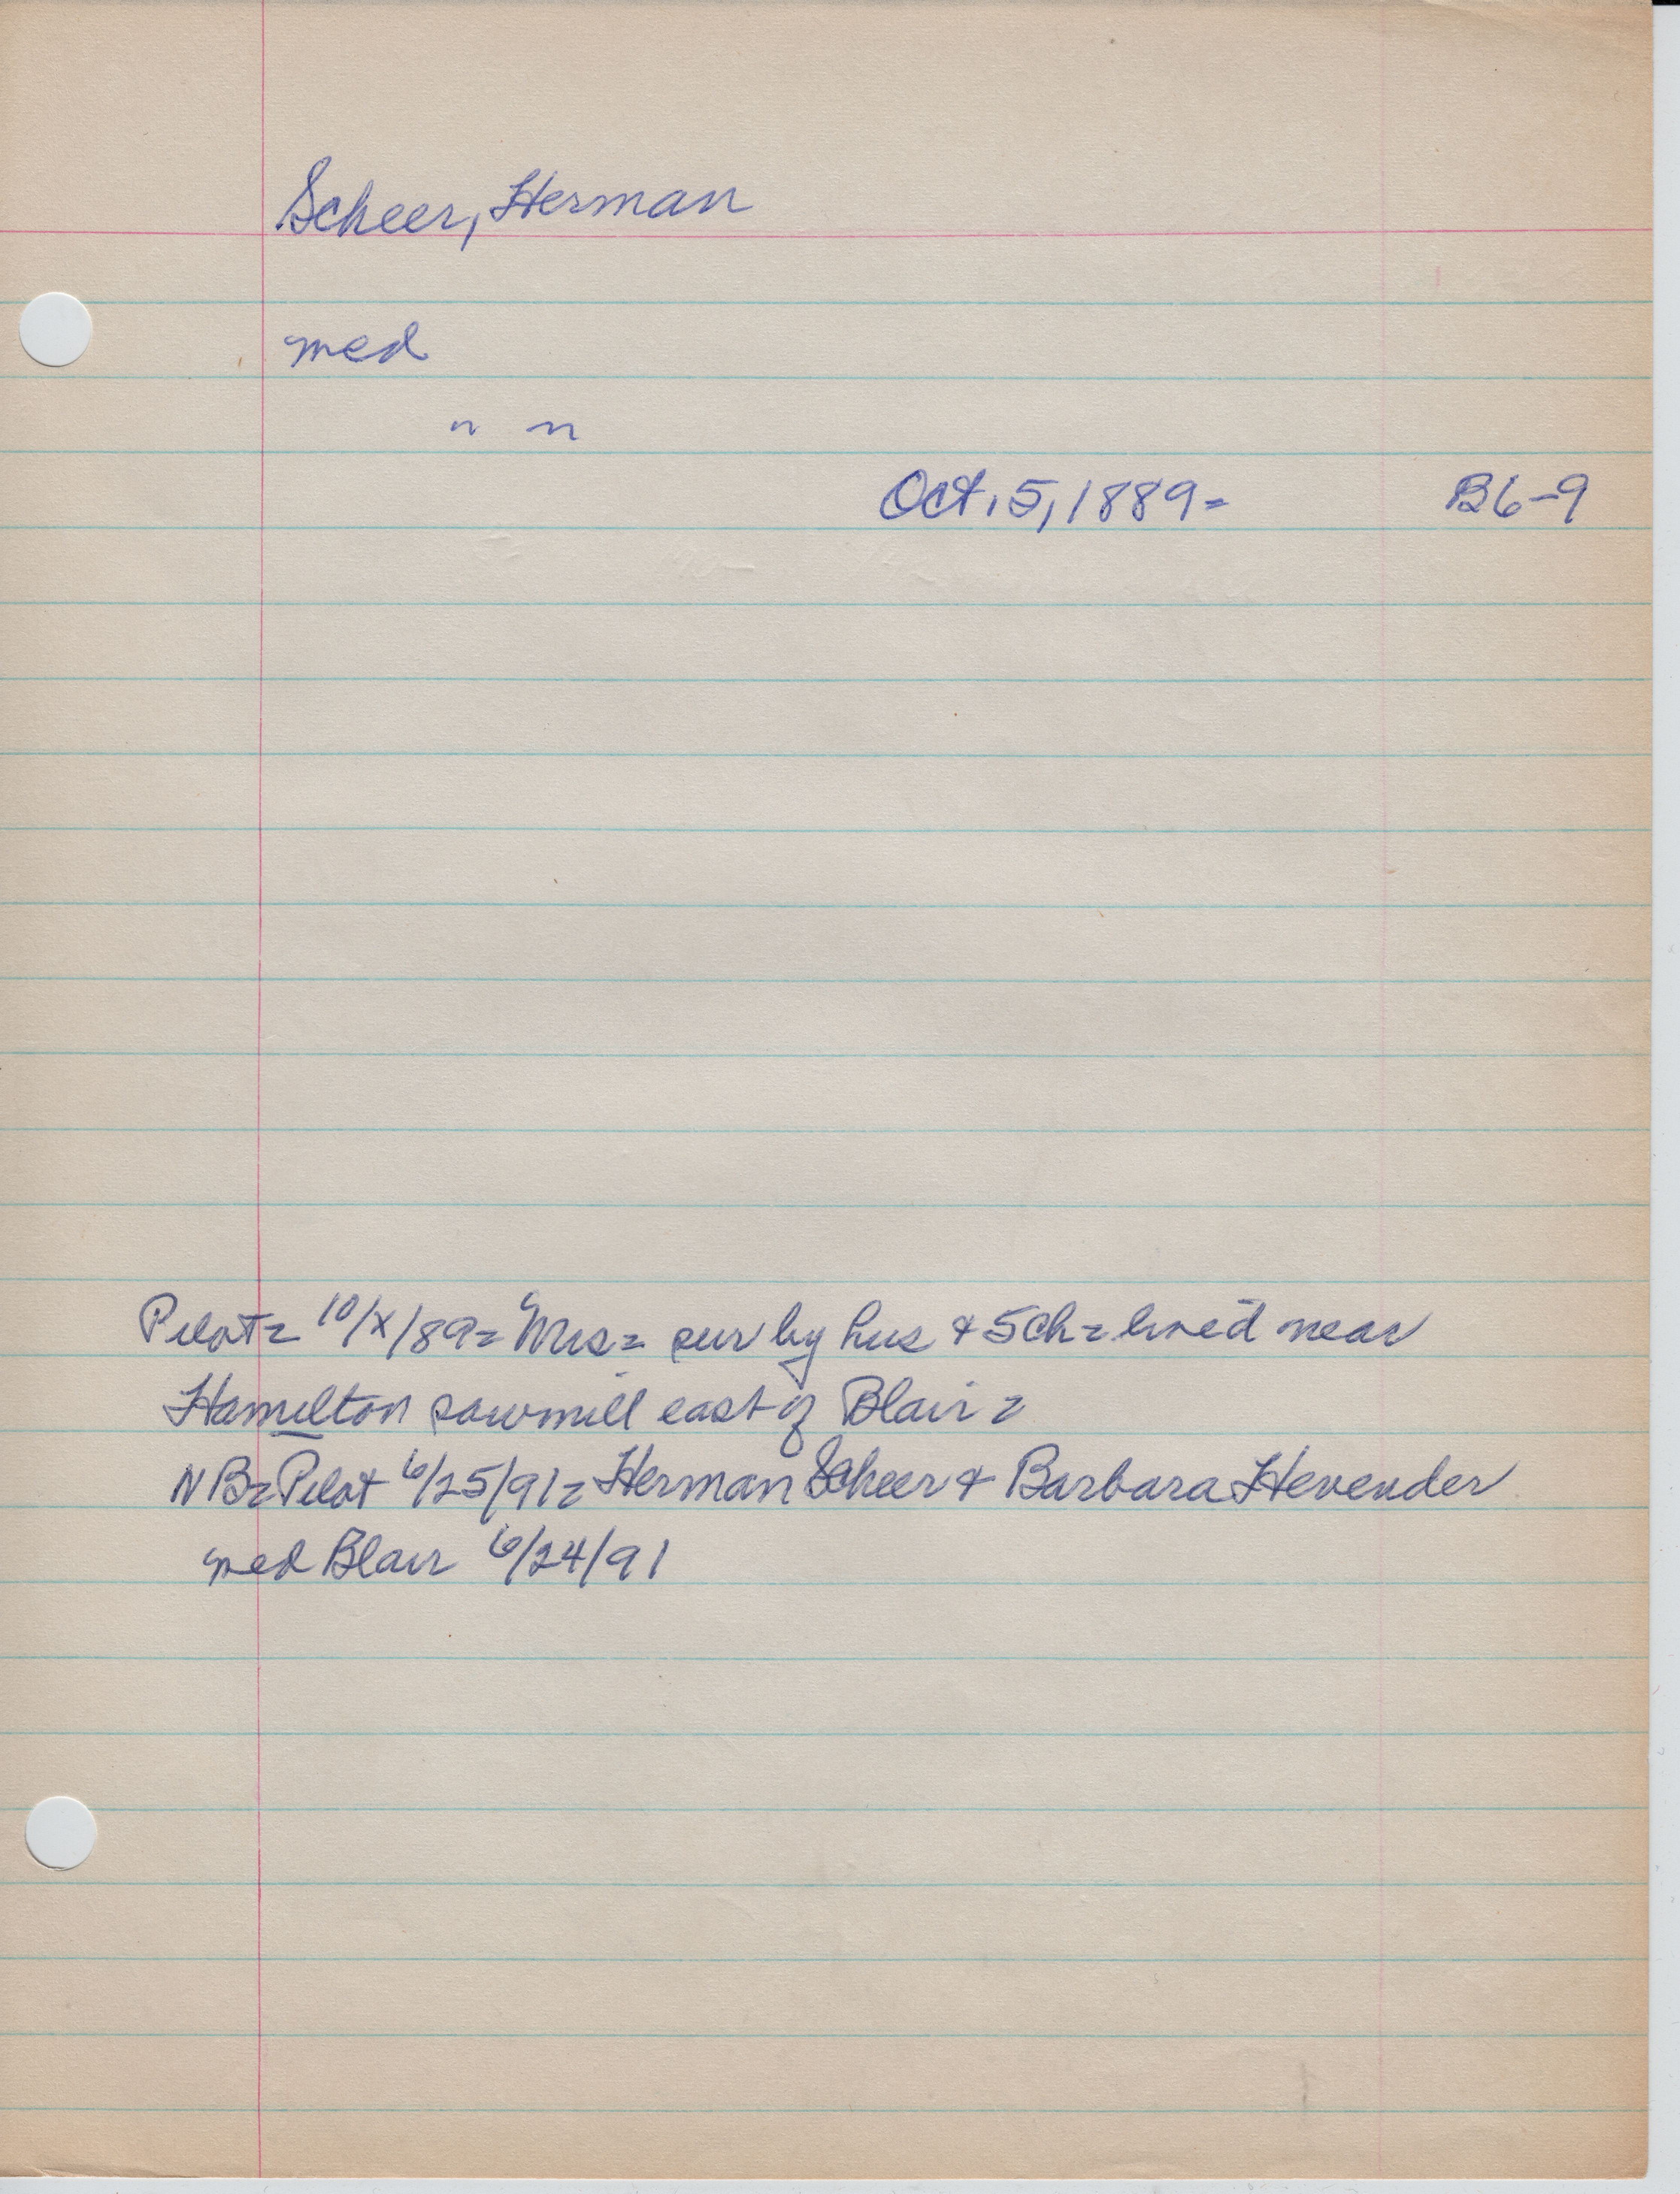 Scheer, Herman
med
" "
Oct. 5, 1889= B6-9
Pilot= 10/X/89= Mrs= sur by hus & 5 ch= lived near
Hamilton sawmill east of Blair=
NB= Pilot 6/25/91= Herman Scheer & Barbara Hevender
med Blair 6/24/91